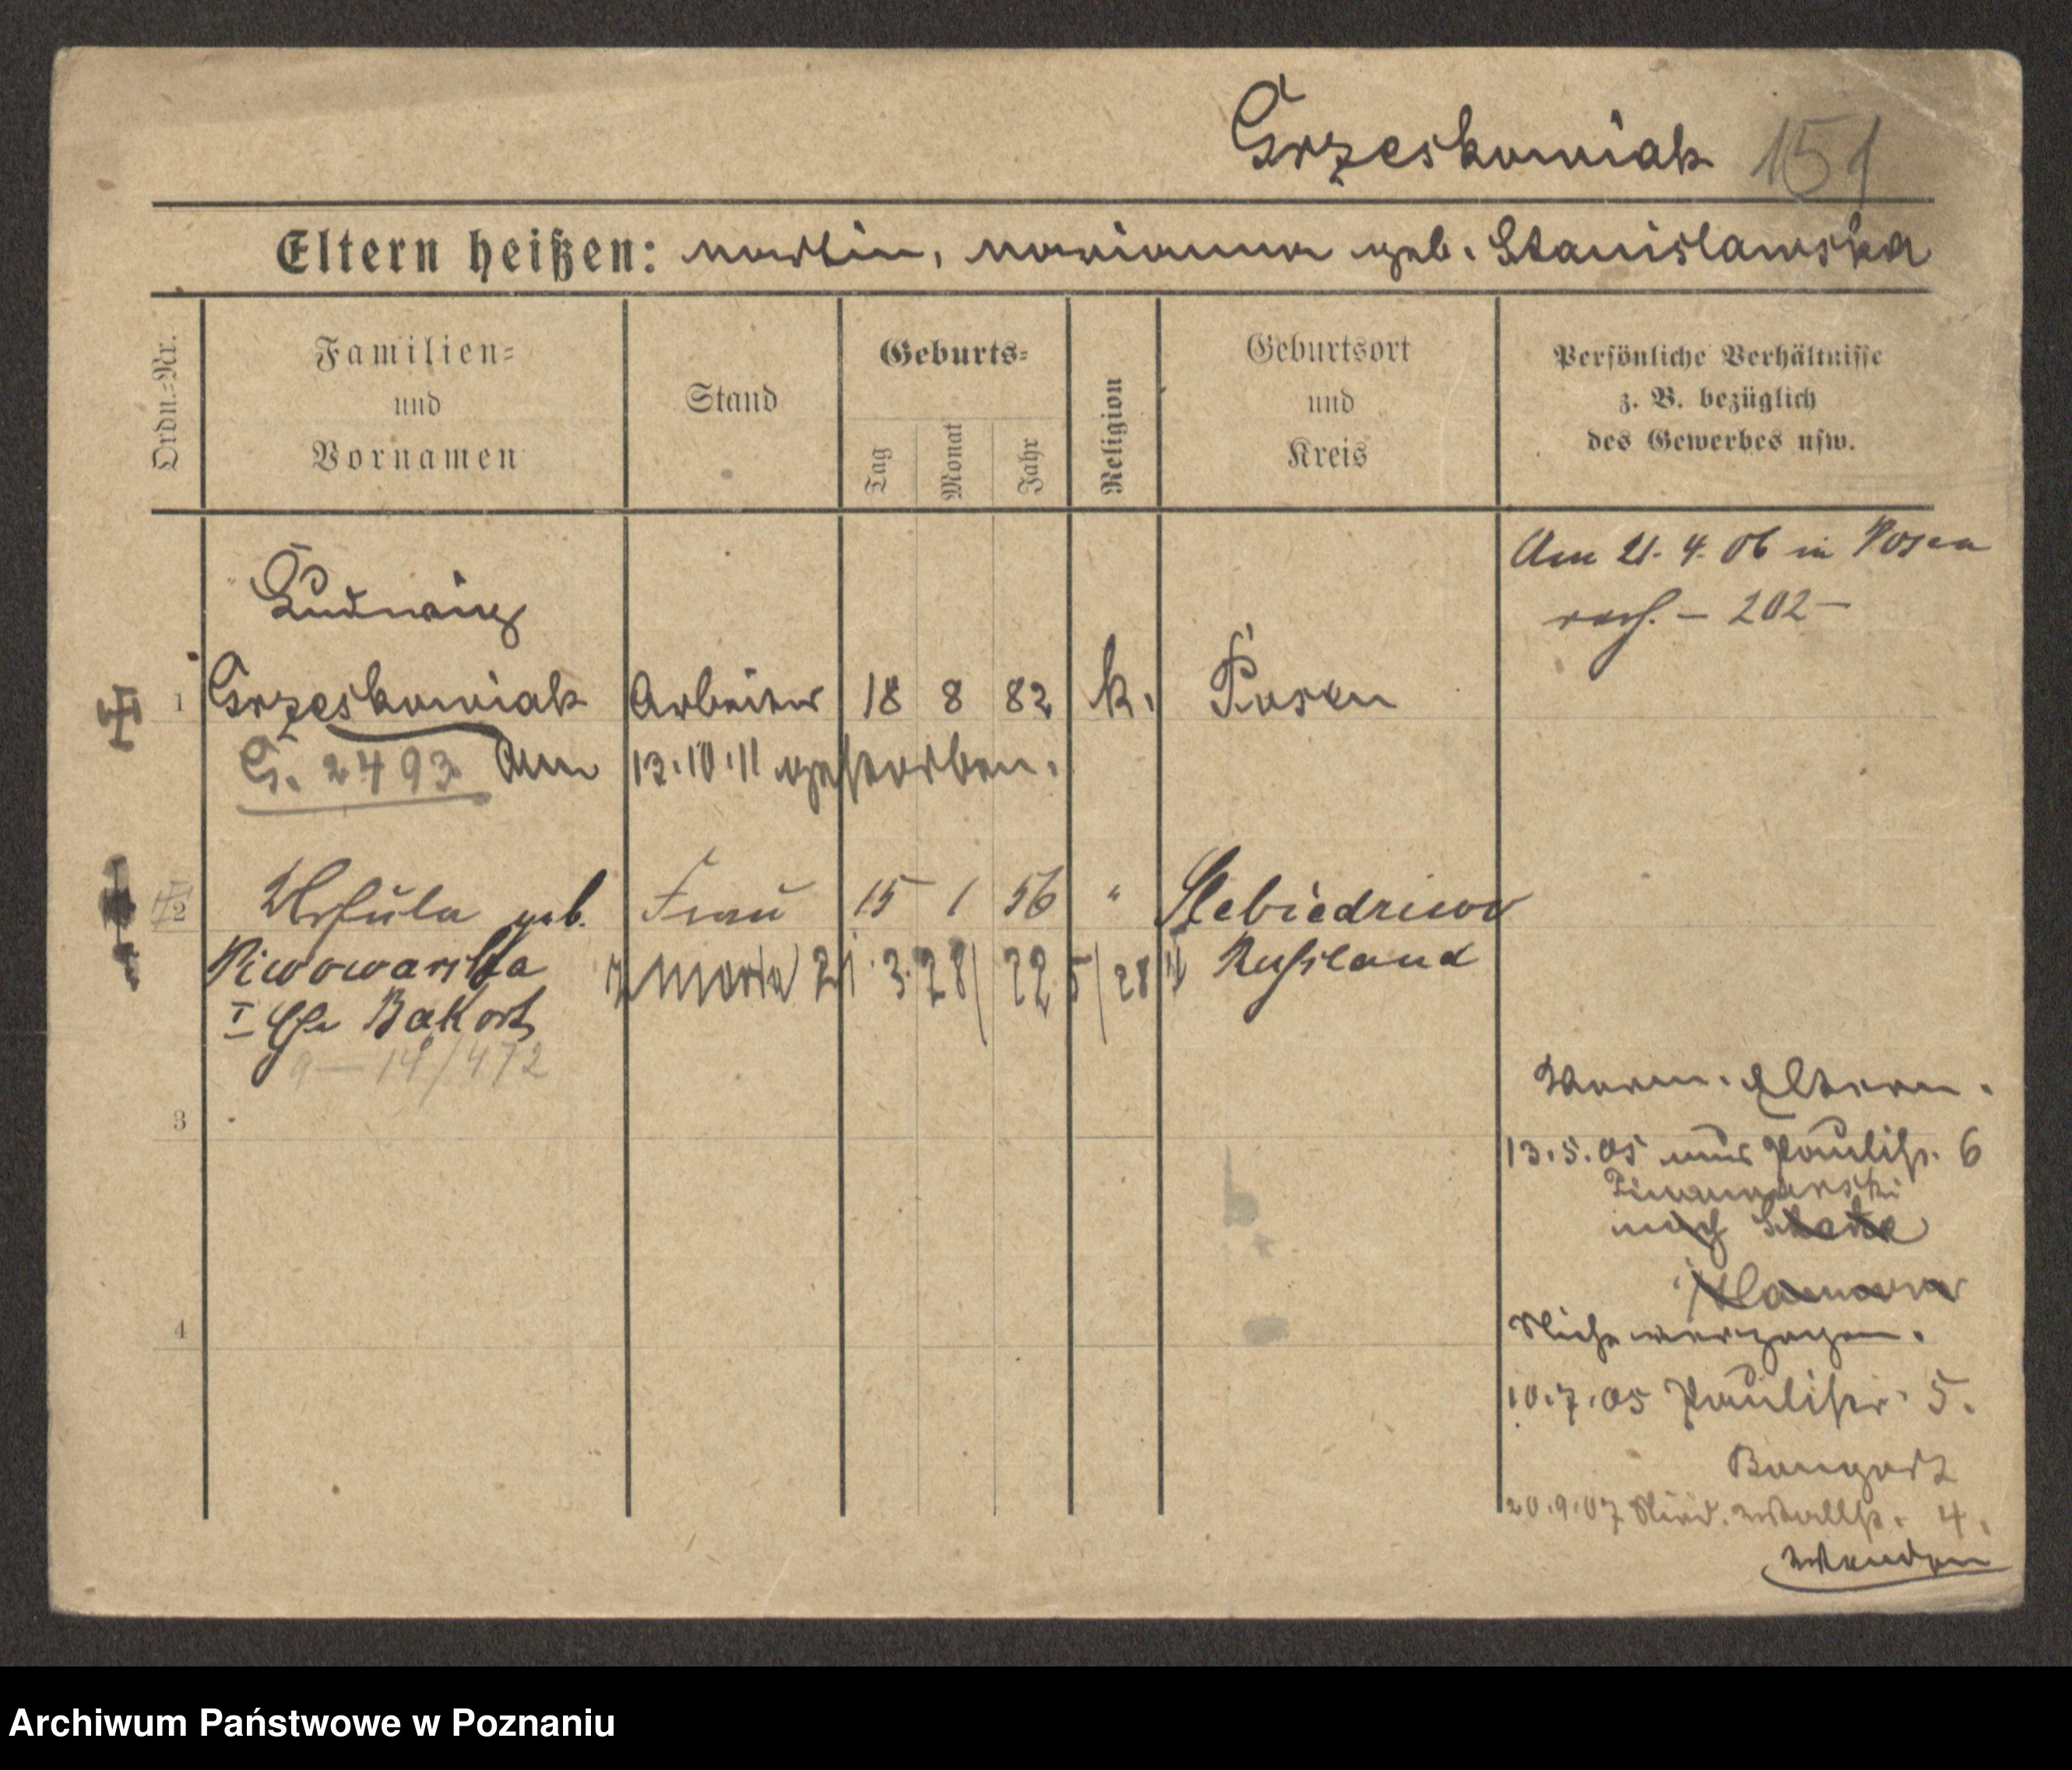 Grzeskowiak 151
Eltern heißen: Martin, Marianna geb. Stanislawska
Ordn.=Nr.
Familien=
und
Vornamen
Stand
Geburts=
Tag
Monat
Jahr
Religion
Geburtsort
und
Kreis
Persönliche Verhältnisse
z. B. bezüglich
des Gewerbes usw.
Am 21. 4. 06 in Posen
verh. - 202 -
Ludwig
1 Grzeskowiak Arbeiter 18 8 82 k. Posen
G. 2493 Am 13.10.11 gestorben.
2 Ursula geb. Frau 15 1 56 "
Piwowarska
Russland
Maria 21.3.28
I Ehe
9-14/472
3
Eltern.
13.5.05 aus Paulist. 6
nach
4
verzogen.
10.7.05 Paulistr. 5.
Bangartz
20.9.07 Wallst. 4.
Wenden
Archiwum Państwowe w Poznaniu